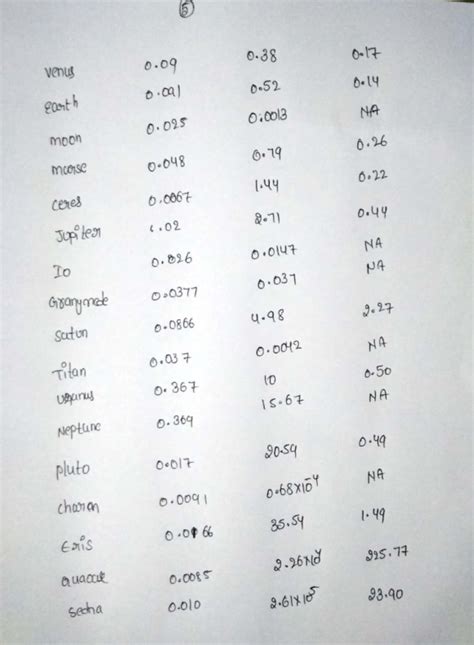 5
Venus 0.09 0.38 0.17
earth 0.091 0.52 0.14
moon 0.025 0.0013 NA
marse 0.048 0.79 0.26
ceres 0.0067 1.44 0.22
Jupiter 1.02 8.71 0.44
Io 0.026 0.0147 NA
Granymede 0.0377 0.037 NA
Satun 0.0866 4.98 2.27
Titan 0.037 0.0042 NA
uranus 0.367 10 0.50
Neptune 0.369 15.67 NA
pluto 0.017 20.59 0.49
charon 0.0091 0.68x10⁻⁴ NA
Eris 0.0166 35.54 1.49
0.0085 225.77
sedna 0.010 2.61x10⁵ 23.90